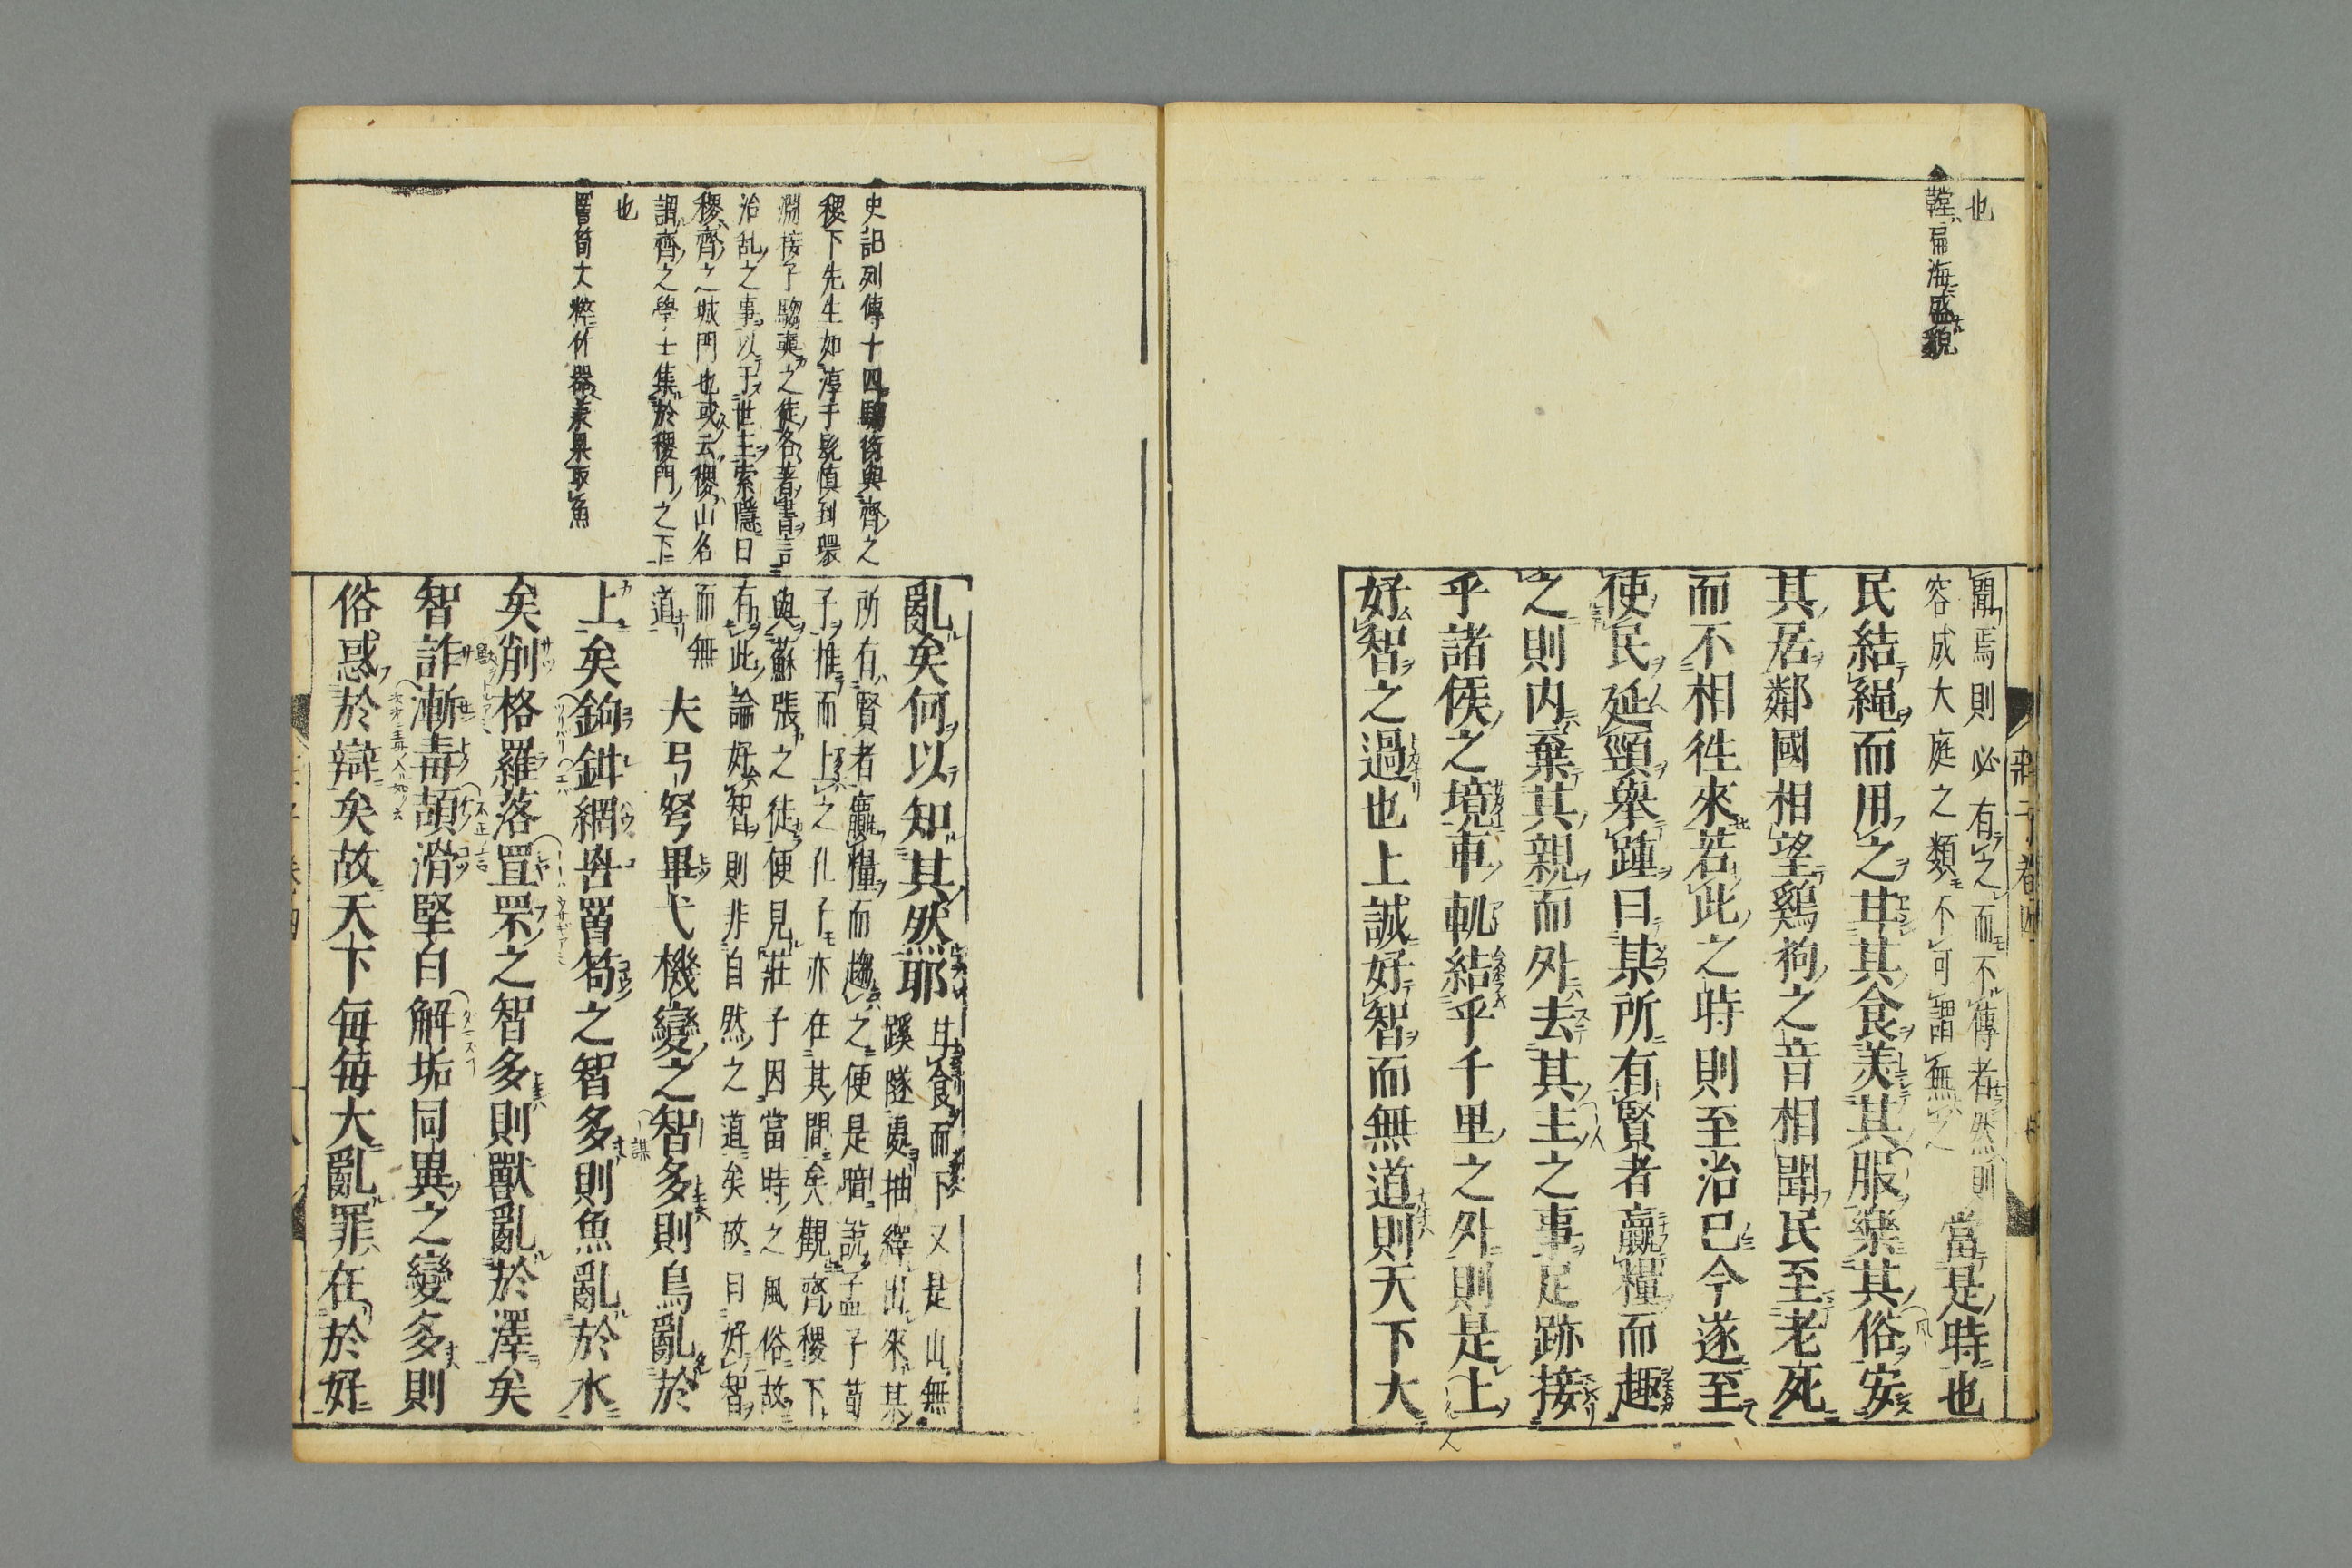 也
鞺扁海盛貌
莊子卷四
聞焉則必有之而不傳者然則
容成大庭之類不可謂無之
當是時也
民結繩而用之甘其食美其服樂其俗安
其居鄰國相望鷄狗之音相聞民至老死
而不相徃來若此之時則至治已今遂至
使民延頸舉踵曰某所有賢者贏糧而趣
之則内棄其親而外去其主之事足跡接
乎諸侯之境車軌結乎千里之外則是上
好智之過也上誠好智而無道則天下大
史記列傳十四騶衍與齊之
稷下先生如淳于髡慎到環
淵接子騶奭之徒各著書言
治乱之事以于世主索隱曰
稷齊之城門也或云稷山名
謂齊之學士集於稷門之下
也
罾笱大粹竹器義具取魚
亂矣何以知其然耶
甘食而下又是山無
蹊隧處抽繹出來某
所有賢者贏糧而趨之便是暗說孟子荀
子推而上之孔子亦在其間矣觀齊稷下
與蘇張之徒便見莊子因當時之風俗故
有此論好智則非自然之道矣故曰好智
而無
道
夫弓弩畢弋機變之智多則鳥亂於
上矣鉤鉺網罟罾笱之智多則魚亂於水
矣削格羅落罝罘之智多則獸亂於澤矣
智詐漸毒頡滑堅白解垢同異之變多則
俗惑於辯矣故天下每每大亂罪在於好